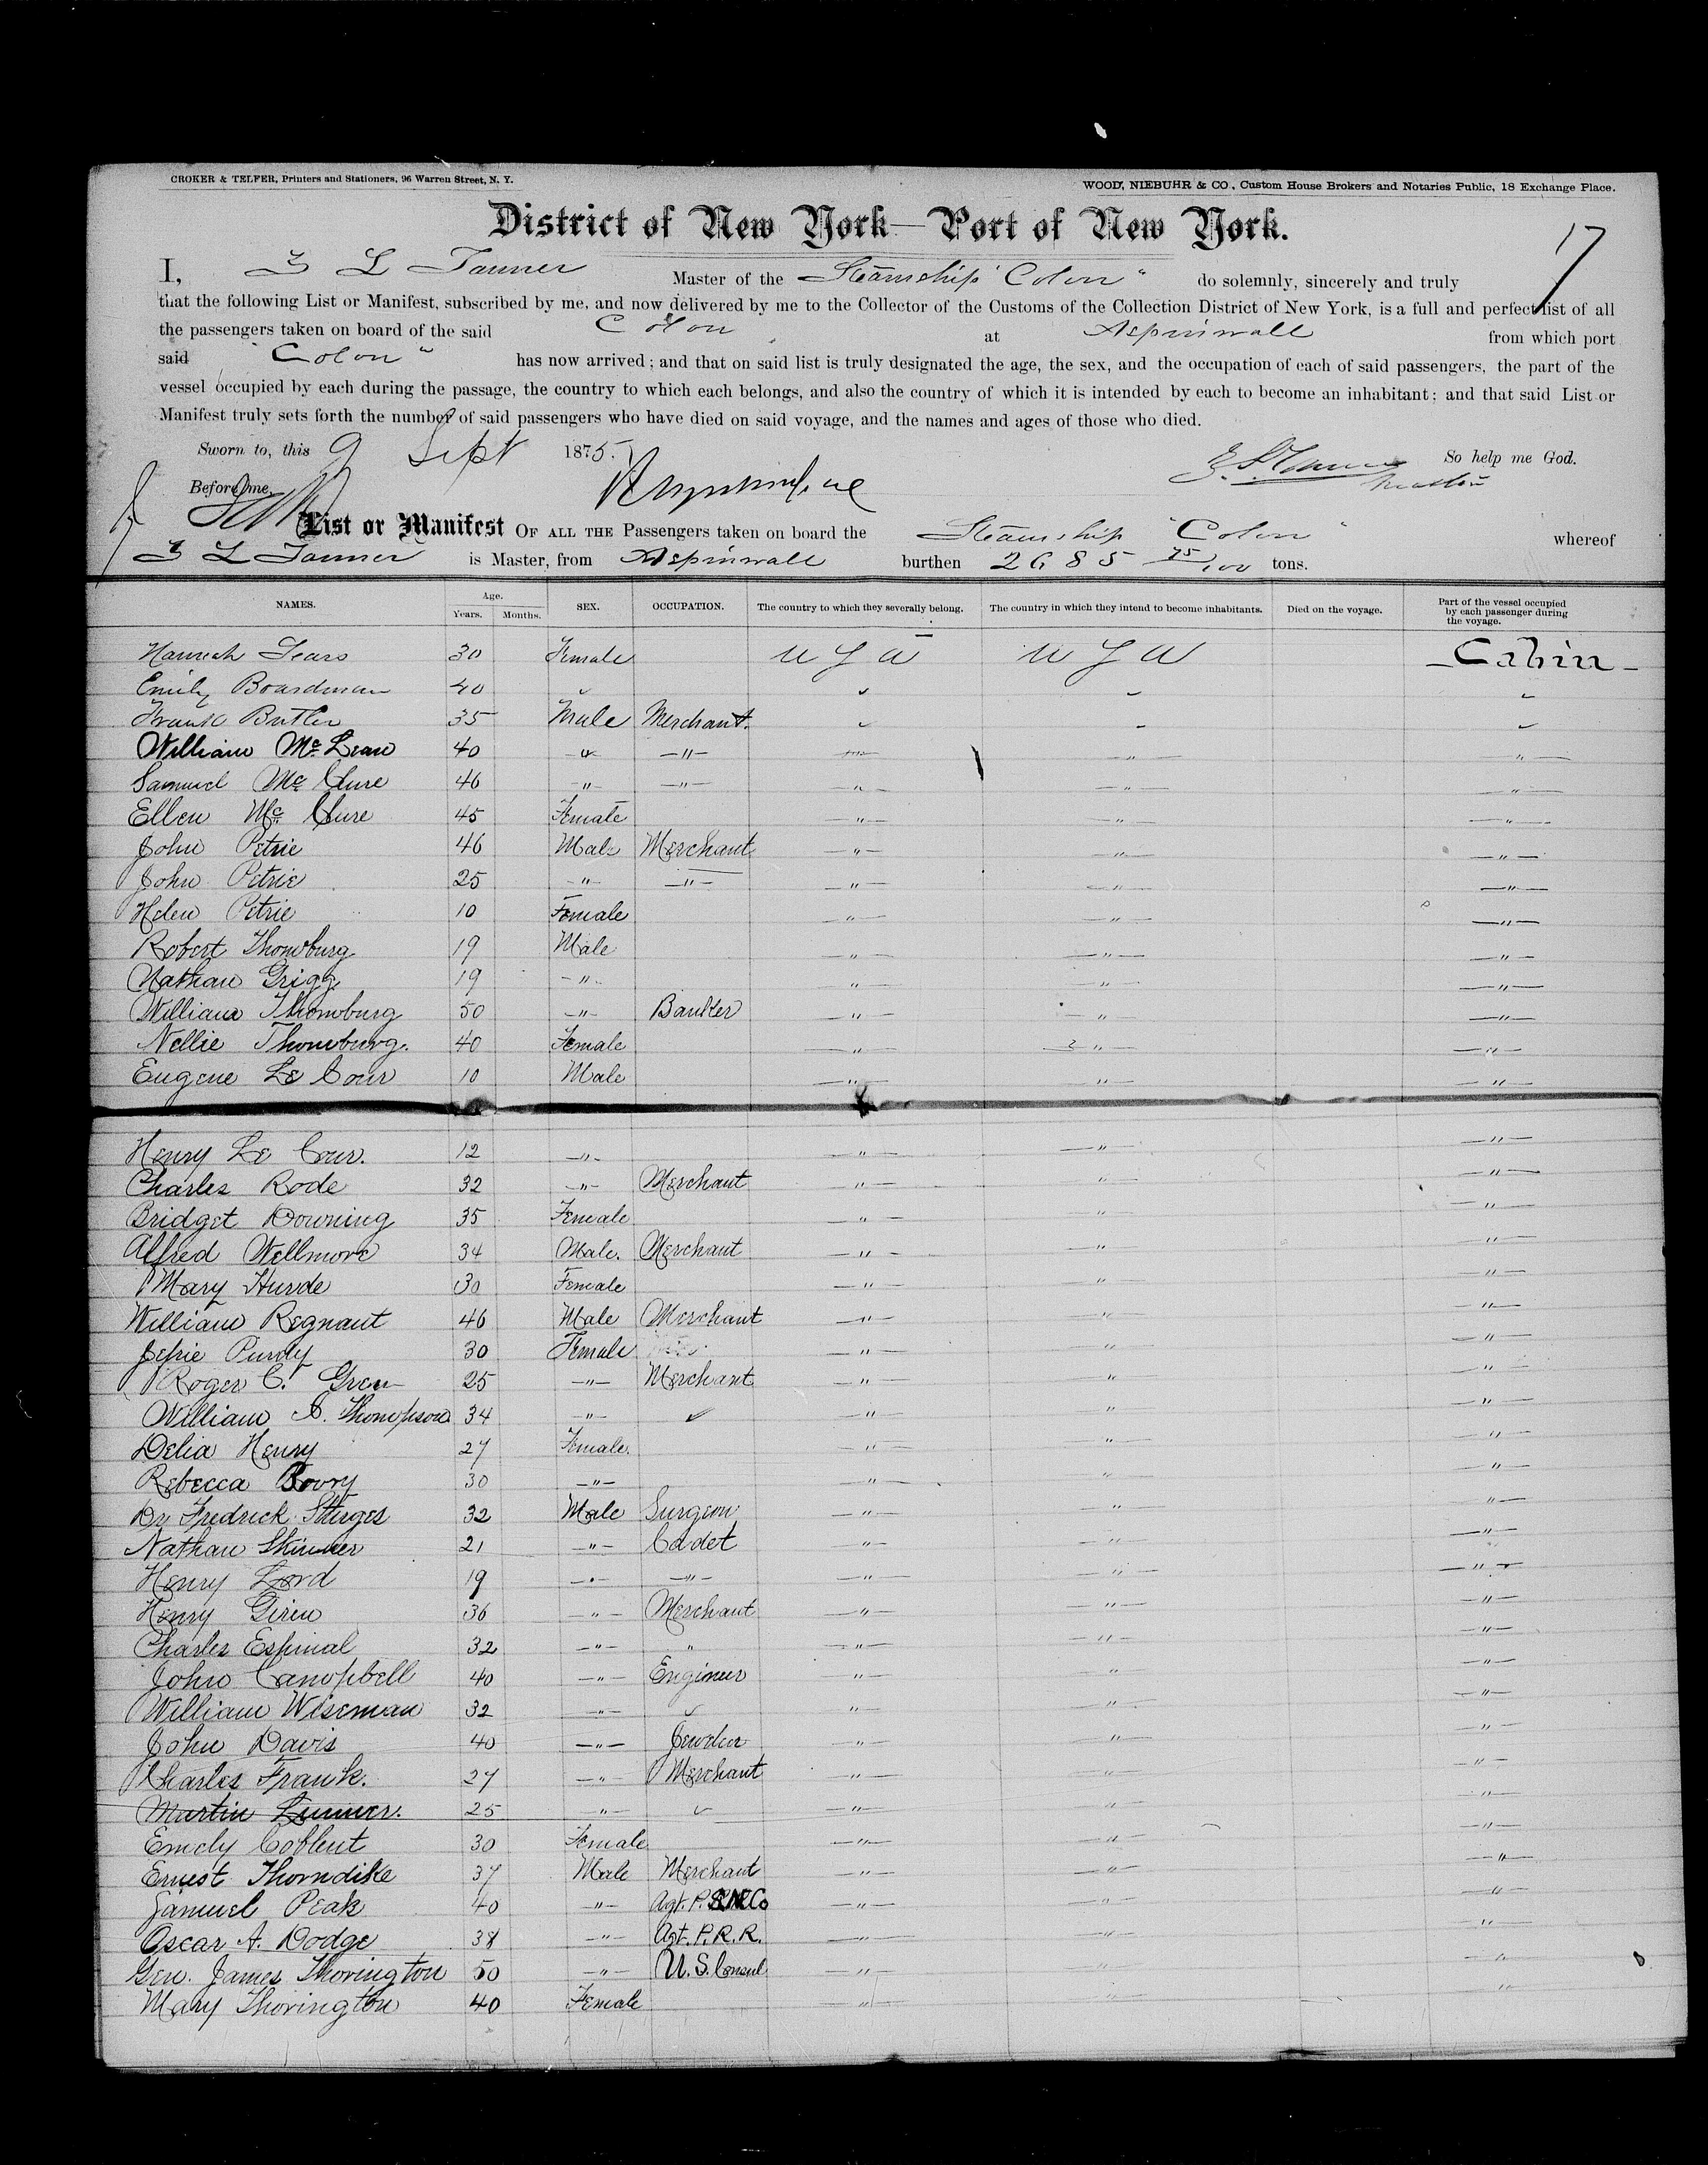 CROKER & TELFER, Printers and Stationers, 96 Warren Street, N. Y.
WOOD, NIEBUHR & CO., Custom House Brokers and Notaries Public, 18 Exchange Place.
District of New York—Port of New York.
17
I, Z L Tanner Master of the Steamship "Colon" do solemnly, sincerely and truly
that the following List or Manifest, subscribed by me, and now delivered by me to the Collector of the Customs of the Collection District of New York, is a full and perfect list of all
the passengers taken on board of the said Colon at Aspinwall from which port
said "Colon" has now arrived; and that on said list is truly designated the age, the sex, and the occupation of each of said passengers, the part of the
vessel occupied by each during the passage, the country to which each belongs, and also the country of which it is intended by each to become an inhabitant; and that said List or
Manifest truly sets forth the number of said passengers who have died on said voyage, and the names and ages of those who died.
Sworn to, this 9 Sept 1875. So help me God.
Z. L. Tanner
Master
Before me,
List or Manifest OF ALL THE Passengers taken on board the Steamship "Colon" whereof
Z L Tanner is Master, from Aspinwall burthen 2685 75/100 tons.
NAMES. Age. Years. Months. SEX. OCCUPATION. The country to which they severally belong. The country in which they intend to become inhabitants. Died on the voyage. Part of the vessel occupied by each passenger during the voyage.
Hannah Sears 30 Female U S A U S A Cabin
Emily Boardman 40 " " " "
Frank Butler 35 Male Merchant. " " "
William Mc Lean 40 " " " " "
Samuel Mc Clure 46 " " " " "
Ellen Mc Clure 45 Female " " "
John Petrie 46 Male Merchant " " "
John Petrie 25 " " " " "
Helen Petrie 10 Female " " "
Robert Thornburg 19 Male " " "
Nathan Grigg 19 " " " "
William Thornburg 50 " Banker " " "
Nellie Thornburg. 40 Female " " "
Eugene Le Cour 10 Male " " "
Henry Le Cour. 12 " " " "
Charles Rode 32 " Merchant " " "
Bridget Downing 35 Female " " "
Alfred Wellmore 34 Male. Merchant " " "
Mary Hurde 30 Female " " "
William Regnaut 46 Male Merchant " " "
Jessie Purdy 30 Female " " "
Roger C. Green 25 " Merchant " " "
William S. Thompson 34 " " " " "
Delia Henry 27 Female. " " "
Rebecca Bovry 30 " " " "
Dr Fredrick Sturges 32 Male Surgeon " " "
Nathan Skinner 21 " Cadet " " "
Henry Lord 19 " " " " "
Henry Giren 36 " Merchant " " "
Charles Espinal 32 " " " " "
John Campbell 40 " Engineer " " "
William Wiseman 32 " " " " "
John Davis 40 " Jeweler " " "
Charles Frank. 27 " Merchant " " "
Martin Lunner. 25 " " " " "
Emely Coblent 30 Female " " "
Ernest Thorndike 37 Male Merchant " " "
Samuel Peak 40 " Agt. P. S.N.Co " " "
Oscar A. Dodge 38 " Agt. P. R. R. " " "
Gen. James Thorington 50 " U. S. Consul " " "
Mary Thorington 40 Female " " "